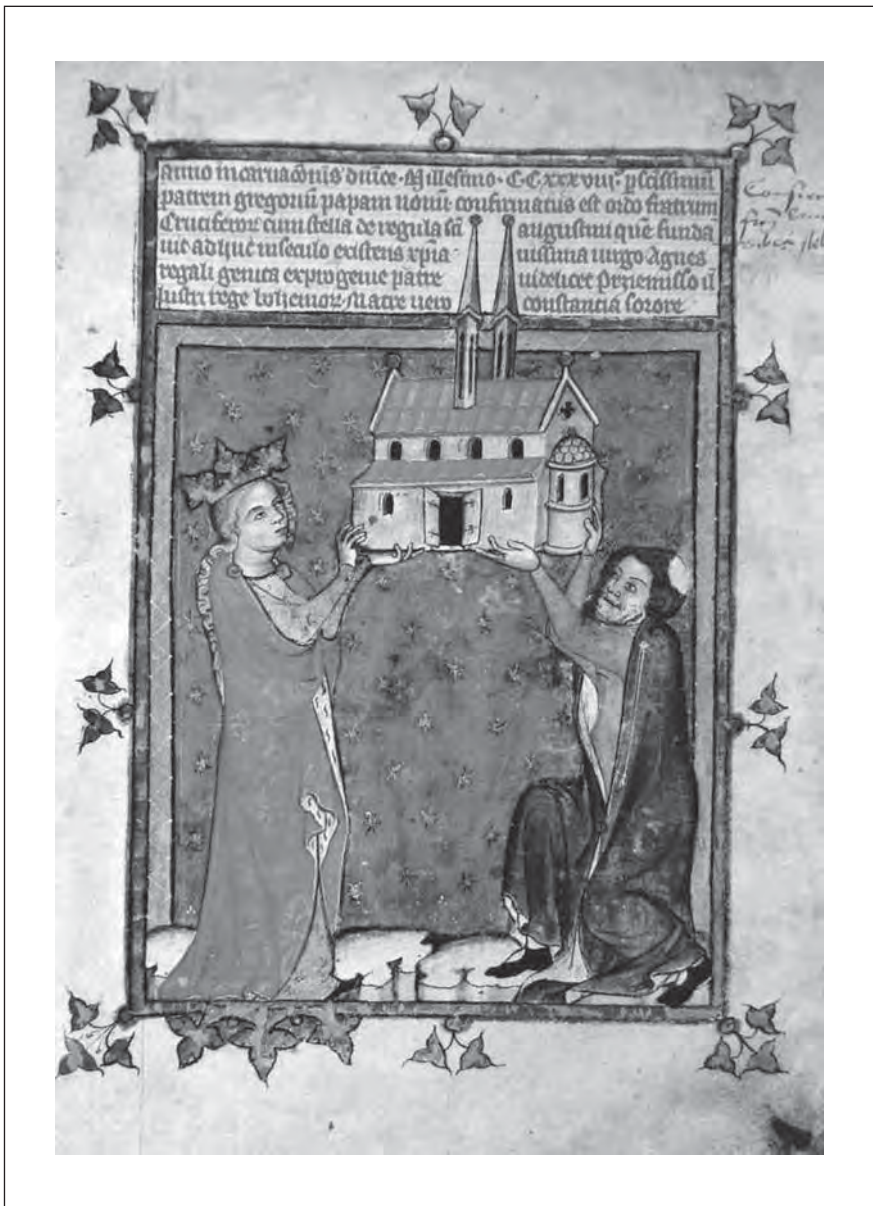 Anno incarnacōnis dnīce · Millesimo · CC xxx viii · p scīssimū
patrem gregoriū papam nonū confirmatus est ordo fratrum
Cruciferoꝝ cum stella de regula scī augustini quē funda
uit adhuc in seculo existens xp̄ia nissima uirgo Agnes
regali genita ex progenie patre uidelicet Przemisslo il
lustri rege bohemoꝝ Matre uero constancia sorore